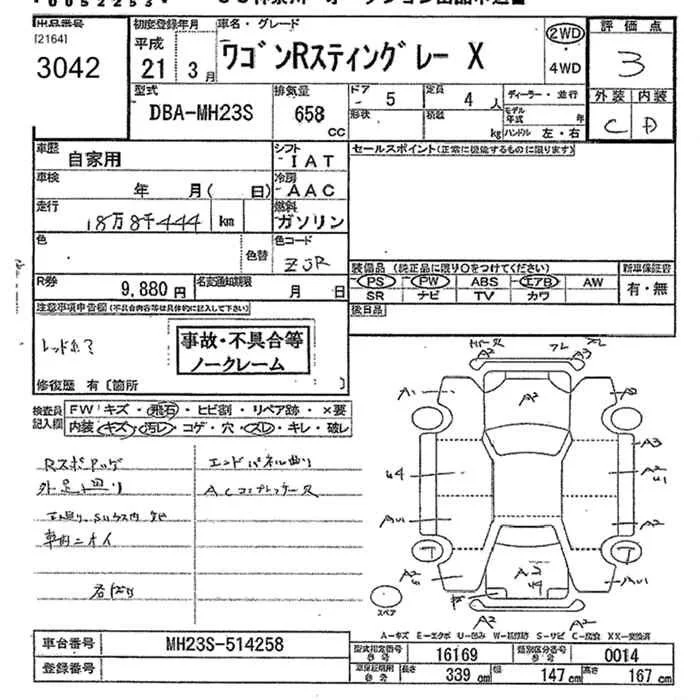 出品番号 初度登録年月 車名・グレード 2WD 評価点
[2164] 平成
3042 21 3月 ワゴンRスティングレー X ・ 3
4WD
型式 排気量 ドア 5 定員 4人 ディーラー・並行 外装 内装
DBA-MH23S 658 cc 形状 積載 kg モデル年式 年 C D
ハンドル 左・右
車歴 自家用 シフト IAT セールスポイント(正常に機能するものに限ります)
車検 年 月( 日) 冷房 AAC
走行 18万8千444 km 燃料 ガソリン
色 色替 色コード ZJR
装備品 (純正品に限り○をつけてください) 新車保証書
R券 9,880円 名変期限 月 日 PS PW ABS エアB AW 有・無
SR ナビ TV カワ
注意事項申告欄(不具合内容等は具体的に記入して下さい) 後日品
事故・不具合等
ノークレーム
修復歴 有〔箇所 〕
検査員記入欄 FW キズ・飛石・ヒビ割・リペア跡・×要
内装 キズ・汚レ・コゲ・穴・スレ・キレ・破レ
エンドパネル曲り
ACコンプレッサー又
車内ニオイ
A2 A3
A2
A3
A2
A2
A2
A2
スペア
A-キズ E-エクボ U-凹み S-サビ C-腐食
車台番号 MH23S-514258 型式指定番号 16169 類別区分番号 0014
登録番号 長さ 339cm 幅 147cm 高さ 167cm